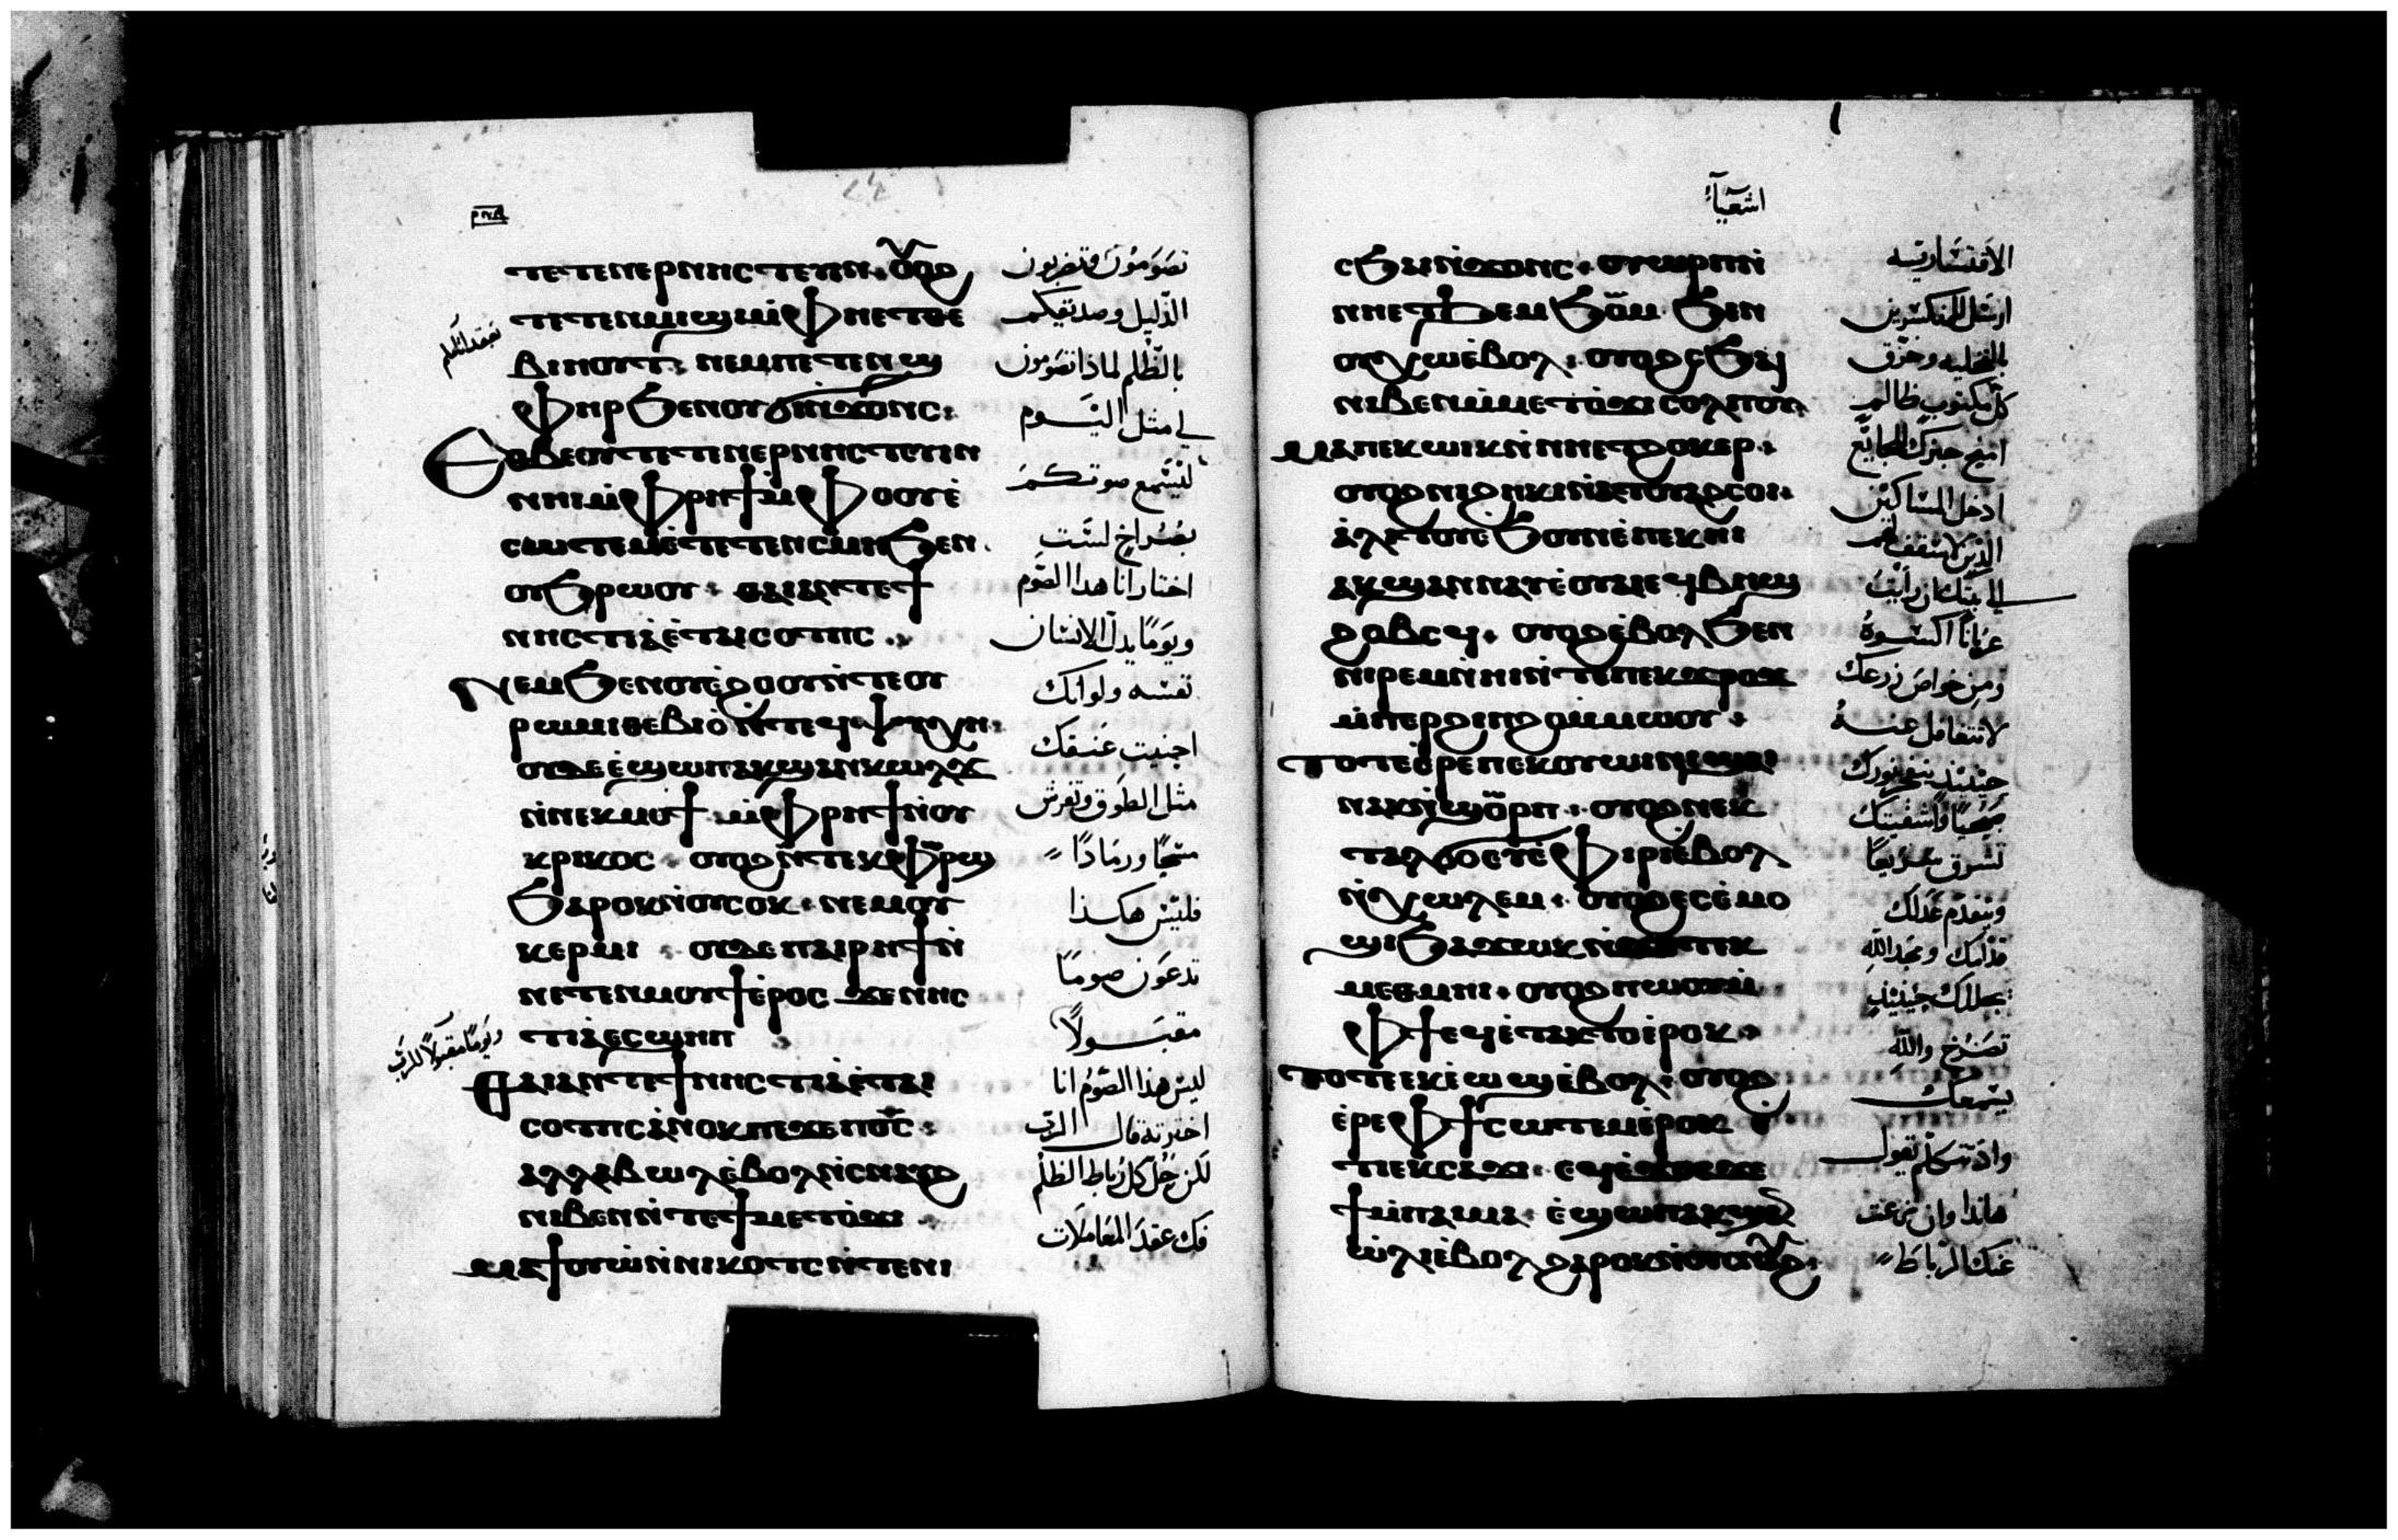 ⲧⲉⲧⲉⲛⲉⲣⲛⲏⲥⲧⲉⲩⲓⲛ ⲟⲩⲟϩ
ⲧⲉⲧⲉⲛⲙⲓϣⲓ ⲙⲫⲏⲉⲧⲑⲉ
ⲃⲓⲏⲟⲩⲧ ⲛⲉⲙⲡⲉⲧⲉⲛϣ
ⲫⲏⲣ ϧⲉⲛⲟⲩϭⲓⲛϫⲟⲛⲥ
ⲉⲑⲃⲉⲟⲩ ⲧⲉⲧⲉⲛⲉⲣⲛⲏⲥⲧⲉⲩⲓⲛ
ⲛⲏⲓ ⲙⲫⲣⲏϯ ⲙⲫⲟⲟⲩ ⲉ
ⲥⲱⲧⲉⲙ ⲉⲧⲉⲧⲉⲛⲥⲙⲏ ϧⲉⲛ
ⲟⲩϧⲣⲱⲟⲩ ⲫⲁⲓ ⲁⲛ ⲧⲉ ϯ
ⲛⲏⲥⲧⲓⲁ ⲉⲧⲁⲓⲥⲟⲧⲡⲥ
ⲛⲉⲙ ϧⲉⲛⲟⲩⲉϩⲟⲟⲩ ⲛⲧⲉⲟⲩ
ⲣⲱⲙⲓ ⲑⲉⲃⲓⲟ ⲛⲧⲉϥⲯⲩⲭⲏ
ⲟⲩⲇⲉ ⲉϣⲱⲡ ⲁⲕϣⲁⲛⲕⲱⲗϫ
ⲛⲡⲉⲕⲙⲟⲩϯ ⲙⲫⲣⲏϯ ⲛⲟⲩ
ⲕⲣⲓⲕⲟⲥ ⲟⲩⲟϩ ⲛⲧⲉⲕⲫⲱⲣϣ
ϧⲁⲣⲟⲕ ⲛⲟⲩⲥⲟⲕ ⲛⲉⲙⲟⲩ
ⲕⲉⲣⲙⲓ ⲟⲩⲇⲉ ⲡⲁⲓⲣⲏϯ ⲛ
ⲛⲉⲧⲉⲛⲙⲟⲩϯ ⲉⲣⲟⲥ ϫⲉ ⲛⲏⲥ
ⲧⲓⲁ ⲉⲥϣⲏⲡ
ⲫⲁⲓ ⲁⲛ ⲧⲉ ϯⲛⲏⲥⲧⲓⲁ ⲉⲧⲁⲓ
ⲥⲟⲧⲡⲥ ⲁⲛⲟⲕ ⲡⲉϫⲉ ⲡⲟⲥ
ⲁⲗⲗⲁ ⲃⲱⲗ ⲉⲃⲟⲗ ⲛⲥⲛⲁⲩϩ
ⲛⲓⲃⲉⲛ ⲛⲧⲉ ϯⲙⲉⲧϭⲓ
ⲙⲁϯⲟⲩⲱ ⲛⲛⲓⲕⲟⲧⲥ ⲛⲧⲉⲛⲓ
تصومون وتضربون
الذليل وصديقكم
بالظلم لماذا تصومون
لي مثل اليوم
ليسمع صوتكم
بصراخ لست
اختار انا هذا الصوم
ويوما يذل الانسان
نفسه ولو انك
احنيت عنقك
مثل الطوق وتفرش
مسحا ورمادا
فليس هكذا
تدعون صوما
مقبولا
ويوما مقبولا للرب
ليس هذا الصوم انا
اخترته قال الرب
لكن حل كل رباط الظلم
فك عقد المعاملات
اشعياء
ⲥϭⲓ ⲛϫⲟⲛⲥ ⲟⲩⲱⲣⲡ ⲛ
ⲛⲏⲉⲧϧⲉⲙϧⲟⲙ ϧⲉⲛ
ⲟⲩⲭⲱ ⲉⲃⲟⲗ ⲟⲩⲟϩ ⲥϧⲁⲓ
ⲛⲓⲃⲉⲛ ⲙⲙⲉⲧϭⲓ ⲥⲟⲗⲡⲟⲩ
ⲙⲁ ⲡⲉⲕⲱⲓⲕ ⲛⲛⲏⲉⲧϩⲟⲕⲉⲣ
ⲟⲩⲟϩ ⲛⲓϩⲏⲕⲓ ⲛⲁⲧⲟⲩⲁϩⲥⲟⲓ
ⲁⲗⲓⲧⲟⲩ ⲉϧⲟⲩⲛ ⲉⲡⲉⲕⲏⲓ
ⲁⲕϣⲁⲛⲛⲁⲩ ⲉⲟⲩⲁⲓ ⲉϥⲃⲏϣ
ϩⲟⲃⲥϥ ⲟⲩⲟϩ ⲉⲃⲟⲗ ϧⲉⲛ
ⲛⲓⲣⲉⲙⲛⲏⲓ ⲛⲧⲉⲡⲉⲕϫⲣⲟϫ
ⲙⲡⲉⲣϩⲓⲡϩⲟ ⲙⲙⲱⲟⲩ
ⲧⲟⲧⲉ ⲉⲣⲉⲡⲉⲕⲟⲩⲱⲓⲛⲓ ϣⲁⲓ
ⲛⲁⲕ ⲛϣⲱⲣⲡ ⲟⲩⲟϩ ⲛⲉⲕ
ⲧⲁⲗϭⲟ ⲉⲩⲉⲫⲓⲣⲓ ⲉⲃⲟⲗ
ⲛⲭⲱⲗⲉⲙ ⲟⲩⲟϩ ⲉⲥⲉⲙⲟ
ϣⲓ ϧⲁϫⲱⲕ ⲛϫⲉ ⲧⲉⲕ
ⲙⲉⲑⲙⲏⲓ ⲟⲩⲟϩ ⲡⲱⲟⲩ ⲙ
ⲫϯ ⲉϥⲉⲧⲁⲕⲧⲟ ⲉⲣⲟⲕ
ⲧⲟⲧⲉ ⲉⲕⲉⲱϣ ⲉⲃⲟⲗ ⲟⲩⲟϩ
ⲉⲣⲉ ⲫϯ ⲥⲱⲧⲉⲙ ⲉⲣⲟⲕ
ⲉⲕⲥⲁϫⲓ ⲉϥⲉϫⲟⲥ ϫⲉ
ϯⲙⲡⲁⲓⲙⲁ ⲉϣⲱⲡ ⲁⲕϣⲁ
ⲱⲗⲓ ⲉⲃⲟⲗ ϩⲁⲣⲟⲕ ⲛⲟⲩⲥⲛⲁⲩϩ
ارسل المنكسرين
بالتخليه وخرق
كل مكتوب ظالم
امنح خبزك الجايع
ادخل المساكين
الذين لا سقف لهم
الي بيتك ان رايت
عريانا اكسوه
ومن خواص زرعك
لا تتغافل عنه
حينئذ ينفجر نورك
صبحيا واشفيتك
تشرق سريعا
ويتقدم عدلك
قدامك ومجد الله
يجللك حينئذ
تصرخ والله
يسمعك
واذ تتكلم يقول
هانذا وان نزعت
عنك الرباط